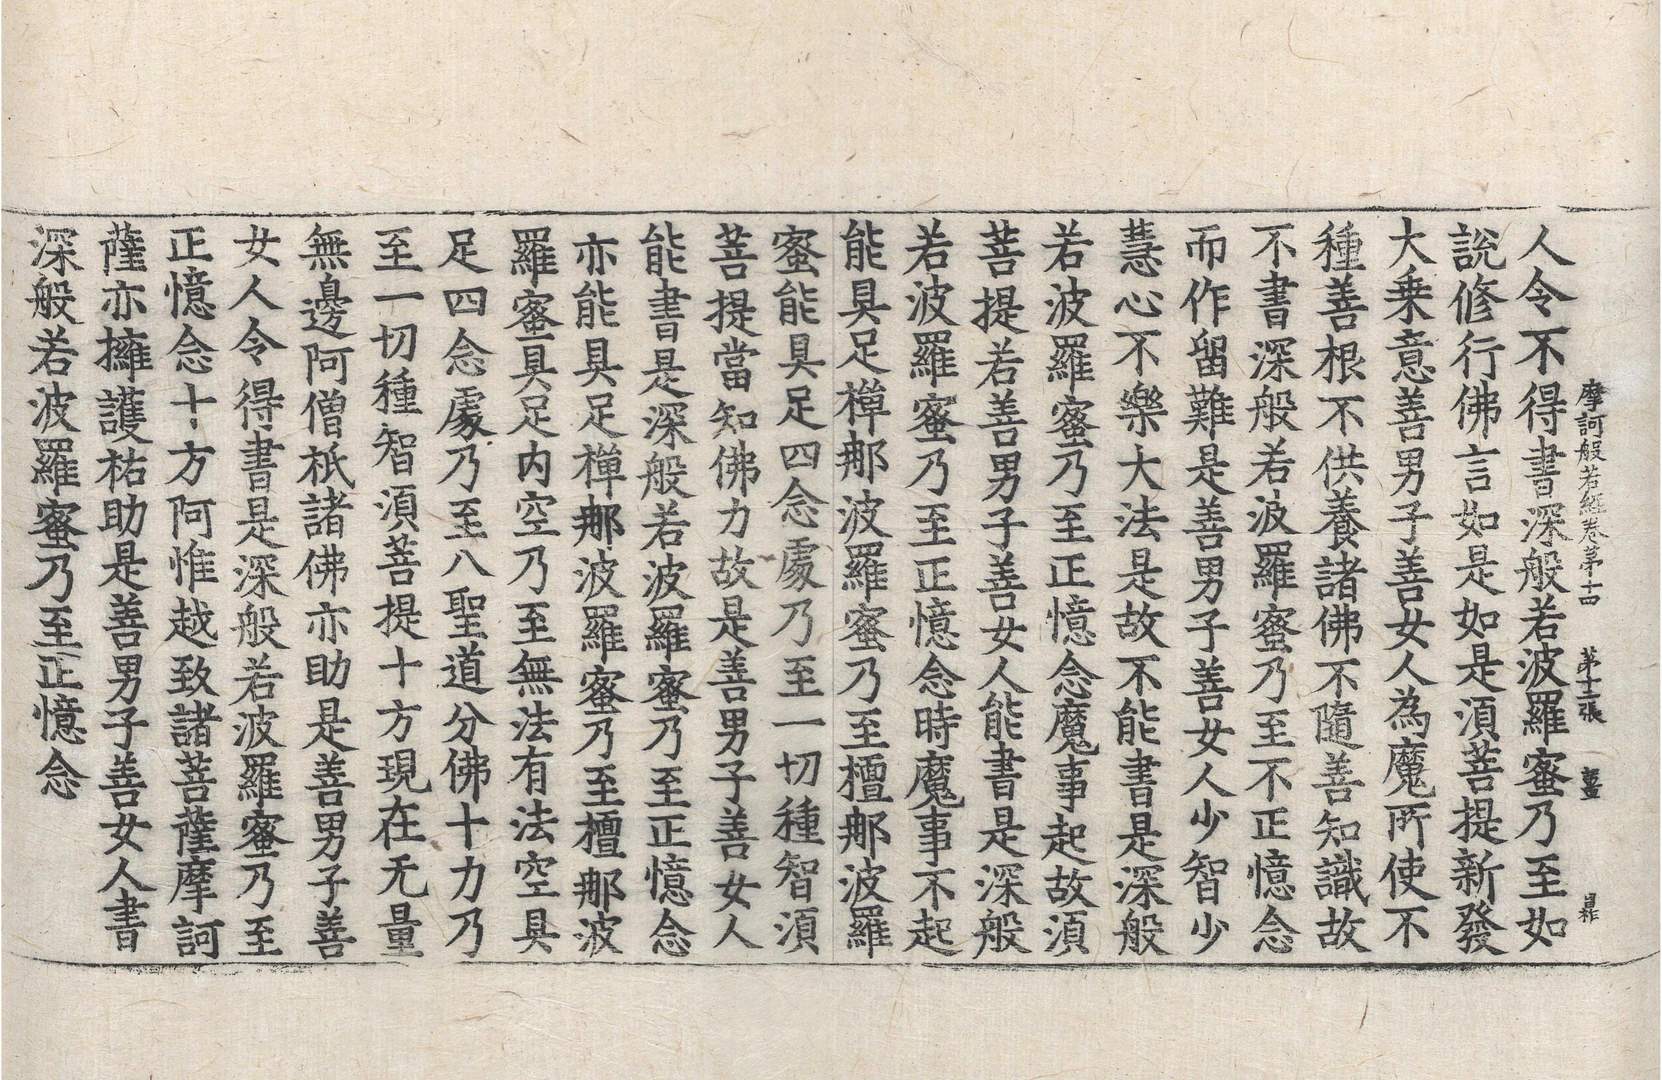 摩訶般若經卷第十四 第十三張 薑
人令不得書深般若波羅蜜乃至如
說修行佛言如是如是須菩提新發
大乗意善男子善女人為魔所使不
種善根不供養諸佛不隨善知識故
不書深般若波羅蜜乃至不正憶念
而作留難是善男子善女人少智少
慧心不樂大法是故不能書是深般
若波羅蜜乃至正憶念魔事起故須
菩提若善男子善女人能書是深般
若波羅蜜乃至正憶念時魔事不起
能具足禪那波羅蜜乃至檀那波羅
蜜能具足四念處乃至一切種智須
菩提當知佛力故是善男子善女人
能書是深般若波羅蜜乃至正憶念
亦能具足禪那波羅蜜乃至檀那波
羅蜜具足內空乃至無法有法空具
足四念處乃至八聖道分佛十力乃
至一切種智須菩提十方現在无量
無邊阿僧祇諸佛亦助是善男子善
女人令得書是深般若波羅蜜乃至
正憶念十方阿惟越致諸菩薩摩訶
薩亦擁護祐助是善男子善女人書
深般若波羅蜜乃至正憶念